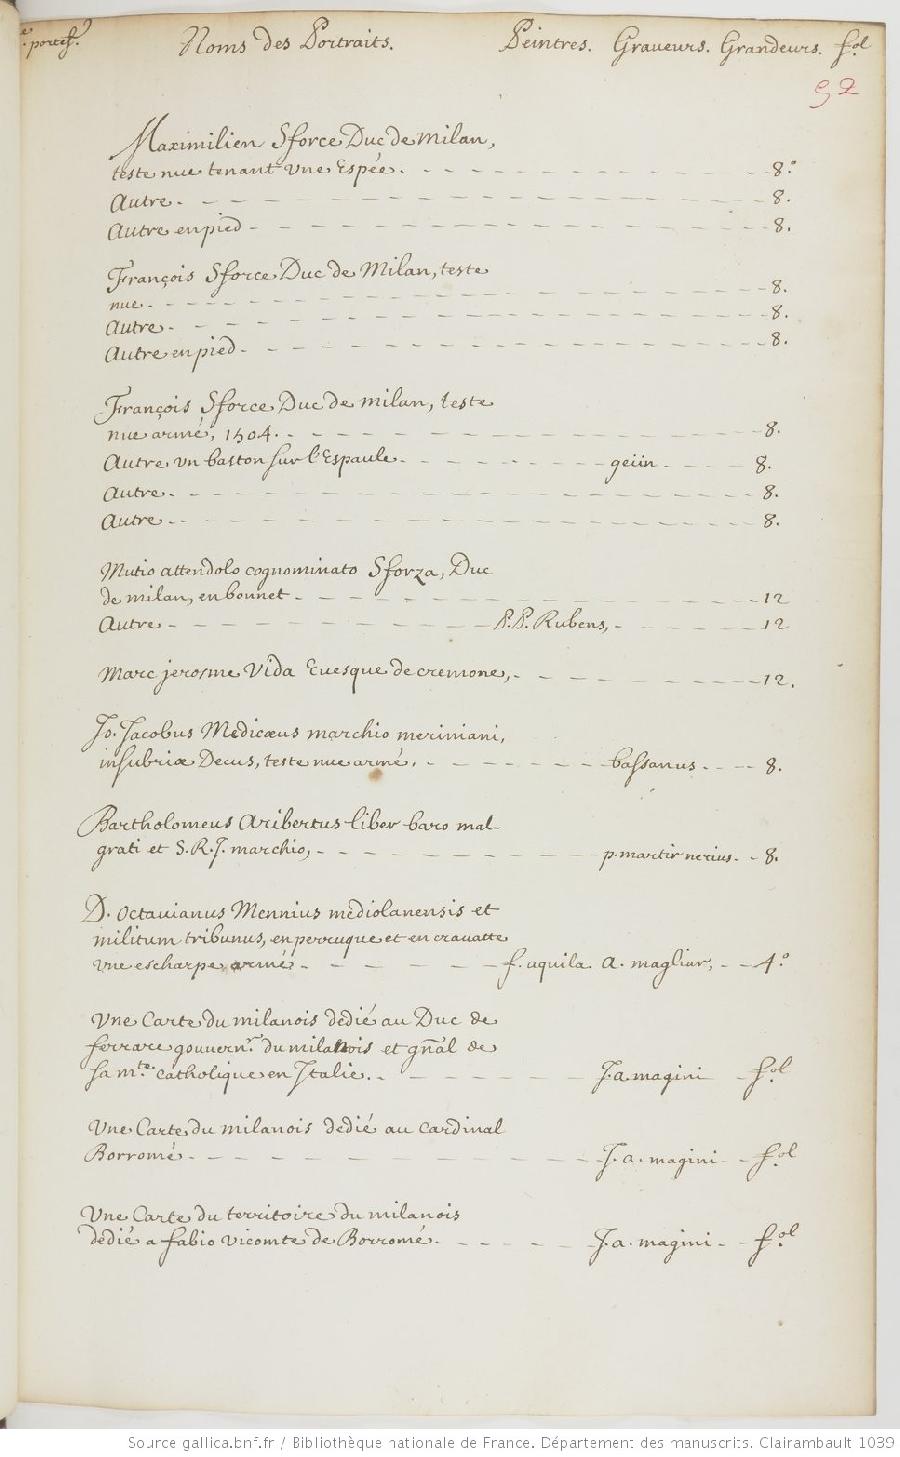 e. portef.
Noms des Portraits. Peintres. Graveurs. Grandeurs. fol
92
Maximilien Sforce Duc de Milan,
teste nue tenant une Espée. 8.°
Autre. 8.
Autre en pied 8.
François Sforce Duc de Milan, teste
nue. 8.
Autre. 8.
Autre en pied. 8.
François Sforce Duc de Milan, teste
nue armé, 1504. 8.
Autre un baston sur l'Espaule. geiin 8.
Autre. 8.
Autre 8.
Mutio attendolo cognominato Sforza, Duc
de milan, en bonnet 12
Autre P. P. Rubens, 12
Marc jerosme Vida Euesque de cremone, 12.
Jo. Jacobus Medicæus marchio meriniani,
insubriæ Decus, teste nue armé. bassanus 8.
Bartholomeus Aribertus liber baro mal
grati et S. R. J. marchio, p. martir nerius. 8.
D. Octauianus Mennius mediolanensis et
militum tribunus, en perruque et en crauatte
une escharpe armé f. aquila A. magliar, 4.°
Une Carte du milanois dédié au Duc de
ferrare gouvernr. du milanois et gñal de
sa mté. catholique en Italie. J. a magini fol.
Une Carte du milanois dedié au cardinal
Borromé J. a. magini fol.
Une Carte du territoire du milanois
dedié a fabio vicomte de Borromé. J. a. magini fol.
Source gallica.bnf.fr / Bibliothèque nationale de France. Département des manuscrits. Clairambault 1039